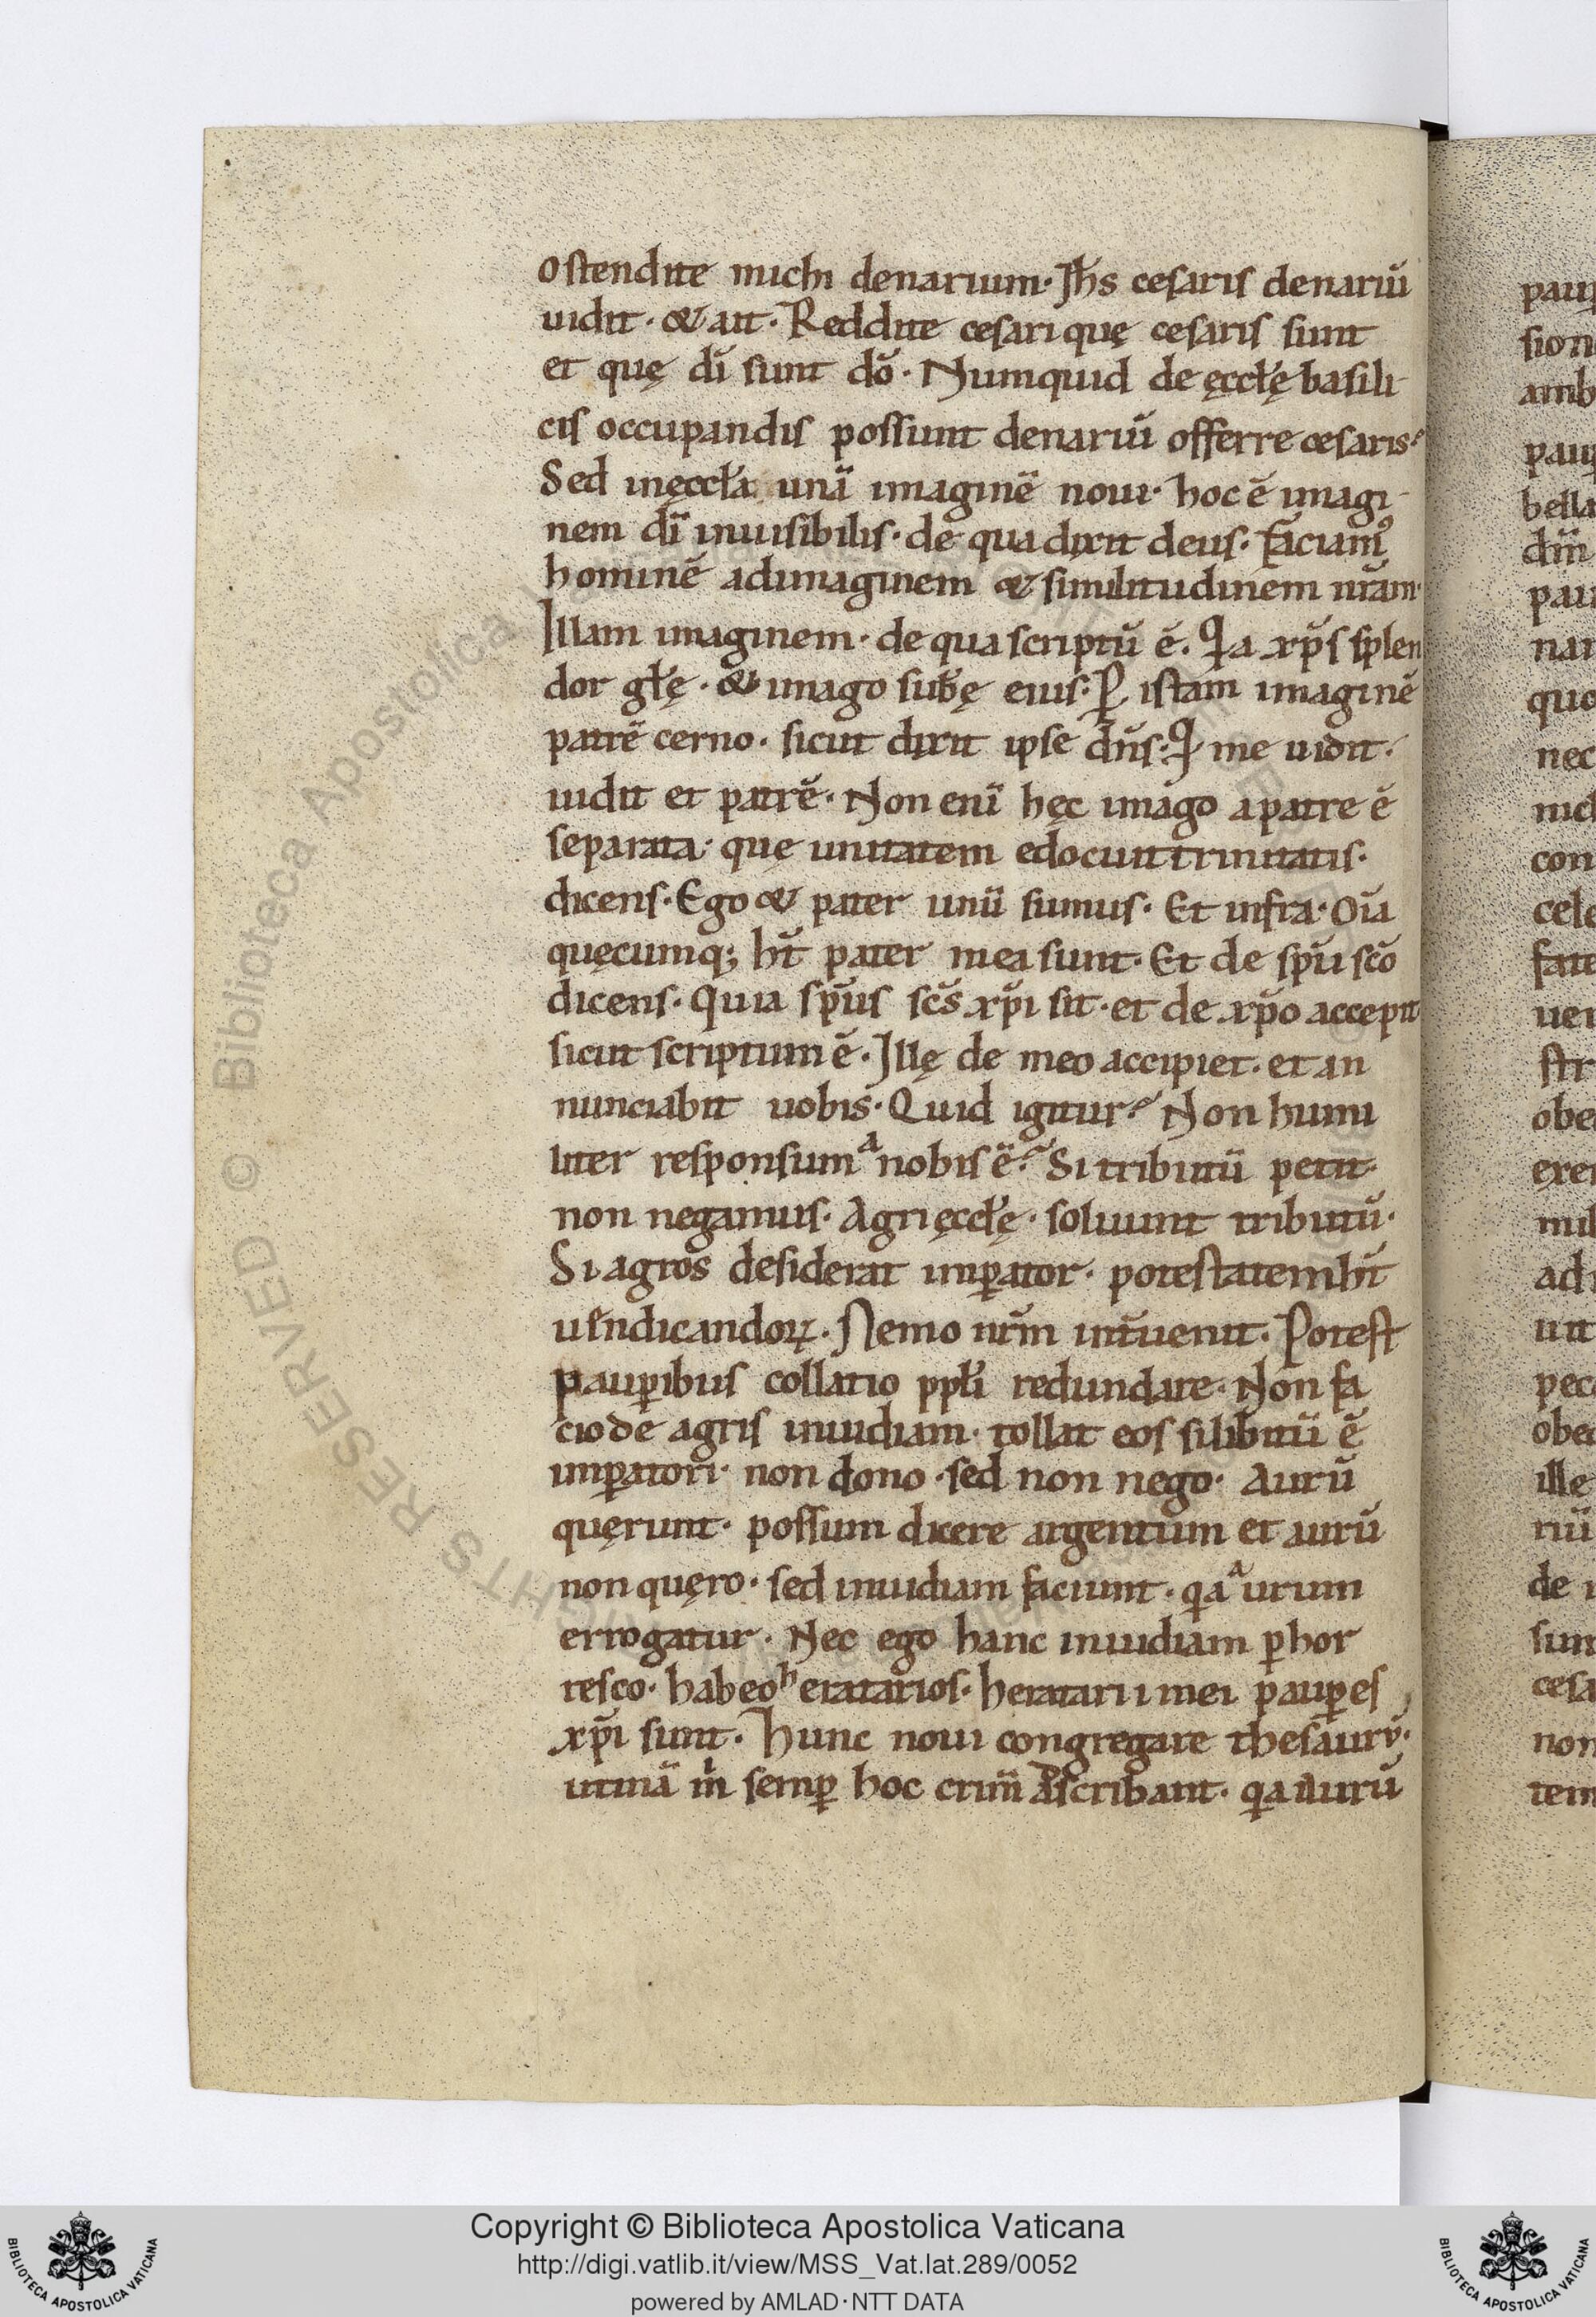 ostendite michi denarium· Jh̄s cesaris denariū
uidit· & ait· Reddite cesari quę cesaris sunt
et quę dī sunt dō· Numquid de ęccłę basili
cis occupandis possunt denariū offerre cesaris?
Sed inęccła unā imaginē noui· hoc ē imagi-
nem dī inuisibilis· de qua dixit deus· faciam᾿
hominē adimaginem & similitudinem nr̄am·
Illam imaginem· de qua scriptū ē. Qa xp̄s splen
dor głę· & imago sub̄ę eius· P istam imaginē
patrē cerno· sicut dixit ipse dn̄s· Q me uidit·
uidit et patrē· Non enī hęc imago apatre ē
separata· quę unitatem edocuit trinitatis·
dicens· Ego & pater unū sumus· Et infra· Oīa
quęcumq; ht̄ pater mea sunt· Et de sp̄u scō
dicens· Quia sp̄us scs̄ xp̄i sit· et de xp̄o accepit
sicut scriptum ē· Illę de meo accipiet· et an
nunciabit uobis· Quid igitur? Non humi
liter responsum a nobis ē? Si tributū petit·
non negamus· Agri ęccłę· soluunt tributū·
Si agros desiderat imꝑator· potestatem ht̄
uendicandoꝝ· Nemo nr̄m int̄uenit· Potest
pauꝑibus collatio ppłi redundare· Non fa
ciode agris inuidiam· tollat eos silibitū ē
imꝑatori· non dono· sed non nego· Aurū
quęrunt· possum dicere argentum et aurū
non quęro· sed inuidiam faciunt· qa aurum
errogatur· Nec ego hanc inuidiam ꝑhor
resco· habeo heratarios· heratarii mei pauꝑes
xp̄i sunt· Hunc noui congregare thesaurū·
utinā m̄ sempꝑ hoc crim̄ ascribant· qa aurū
pauꝑ
sion
amb
pauꝑ
bella
dm̄
pau
nar
quo
nec
mich
con
cele
fate
uer
str
obe
exer
mil
ad
uit
pec
obed
ille
riū
de
sun
cesa
non
tem
© Biblioteca Apostolica Vaticana
RIGHTS RESERVED
Copyright © Biblioteca Apostolica Vaticana
http://digi.vatlib.it/view/MSS_Vat.lat.289/0052
powered by AMLAD·NTT DATA
BIBLIOTECA APOSTOLICA VATICANA
BIBLIOTECA APOSTOLICA VATICANA